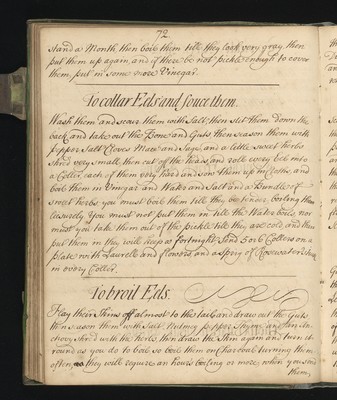 72
stand a Month then boil them till they look very gray, then
put them up again, and if there be not pickle enough to cover
them, put in some more Vinegar.
To collar Eels and souce them.
Wash them and scour them with Salt, then slit them down the
back and take out the Bone and Guts then season them with
pepper Salt Cloves Mace and Sage and a little sweet herbs
shred very small, then cut off the heads, and role every eel into
a Coller, each of them very hard and sow them up in Cloths, and
boil them in Vinegar and Water and Salt and a Bundle of
sweet herbs you must boil them till they be tender boiling them
leisurely You must not put them in till the Water boils, nor
must you take them out of the pickle till they are cold, and then
put them in they will keep a fortnight, Send 5 or 6 Collers on a
plate with Laurell and flowers and a sprig of Rosemary
in every Coller.
To broil Eels.
Flay their Skins off almost to the tail and draw out the Guts
then season them with Salt Nutmeg pepper Thyme an
chovy shred with the herbs, then draw the Skin again and turn it
round as you do to boil so broil them on Charcoal turning them
often, they will require an hours broiling or more when you send
them,